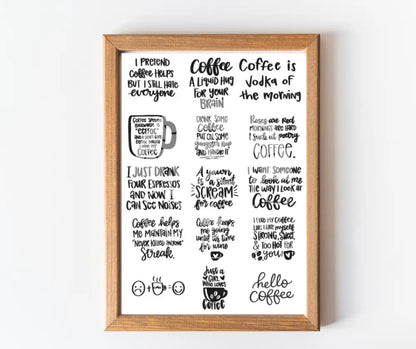 I PRETEND
COFFEE HELPS
BUT I STILL HATE
everyone
Coffee
A LIQUID HUG
FOR YOUR
BRAIN
Coffee is
vodka of
the morning
Coffee spelled
backwards is
"EEFFOC"
Coffee
DRINK SOME
Coffee
PUT ON SOME
gangster rap
AND HANDLE IT
Roses are Red
MORNINGS ARE HARD
I Suck at poetry
COFFEE.
I JUST DRANK
FOUR ESPRESSOS
AND NOW I
CAN SEE NOISES
A yawn
is a silent
SCREAM
for coffee
I WANT SOMEONE
to look at me
THE WAY I LOOK AT
Coffee
Coffee helps
ME MAINTAIN MY
"Never killed anyone"
Streak.
Coffee keeps
me going
until it's time
for wine
I like my Coffee
like I like myself
STRONG, Sweet,
& TOO HOT FOR
you!
Just a
GIRL
WHO LOVES
Coffee
hello
coffee